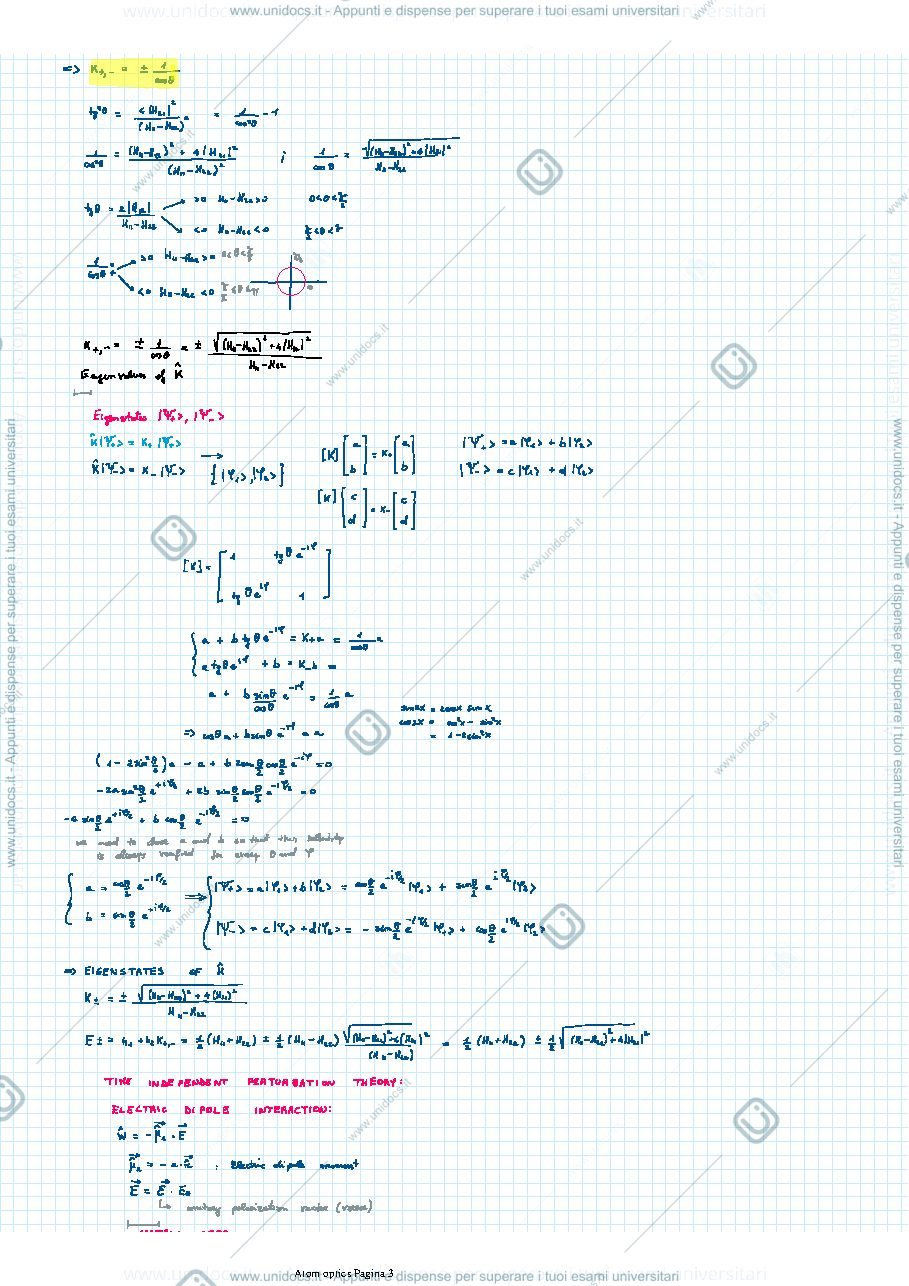 www.unidocs.it - Appunti e dispense per superare i tuoi esami universitari
=> K+,- = ± 1/cosθ
tg²θ = 4|H₂₁|²/(H₁₁-H₂₂)² = 1/cos²θ - 1
1/cos²θ = ((H₁₁-H₂₂)² + 4|H₂₁|²)/(H₁₁-H₂₂)² ; 1/cosθ = √((H₁₁-H₂₂)²+4|H₂₁|²)/(H₁₁-H₂₂)
>0 H₁₁-H₂₂>0 0<θ<π/2
tgθ = 2|H₂₁|/(H₁₁-H₂₂)
<0 H₁₁-H₂₂<0 π/2<θ<π
>0 H₁₁-H₂₂>0 0<θ<π/2
1/cosθ
<0 H₁₁-H₂₂<0 π/2<θ<π
K+,- = ± 1/cosθ = ± √((H₁₁-H₂₂)²+4|H₂₁|²)/(H₁₁-H₂₂)
Eigenvalues of K̂
Eigenstates |Ψ+>, |Ψ->
K̂|Ψ+> = K+|Ψ+> [K][a b] = K+[a b] |Ψ+> = a|φ₁> + b|φ₂>
K̂|Ψ-> = K-|Ψ-> → {|φ₁>,|φ₂>} |Ψ-> = c|φ₁> + d|φ₂>
[K][c d] = K-[c d]
[K] = [1 tgθ e^-iφ
tgθ e^iφ 1]
{ a + b tgθ e^-iφ = K+a = 1/cosθ a
a tgθ e^iφ + b = K_b =
a + b sinθ/cosθ e^-iφ = 1/cosθ a
sin2x = 2cosx sinx
cos2x = cos²x - sin²x
= 1-2sin²x
=> cosθ a + b sinθ e^-iφ = a
(1 - 2sin²θ/2)a - a + b 2sinθ/2 cosθ/2 e^-iφ = 0
-2a sin²θ/2 e^+iφ/2 + 2b sinθ/2 cosθ/2 e^-iφ/2 = 0
-a sinθ/2 e^+iφ/2 + b cosθ/2 e^-iφ/2 = 0
we need to chose a and b so that this
is always verified for every θ and φ
{ a = cosθ/2 e^-iφ/2 => { |Ψ+> = a|φ₁> + b|φ₂> = cosθ/2 e^-iφ/2 |φ₁> + sinθ/2 e^iφ/2 |φ₂>
b = sinθ/2 e^+iφ/2 |Ψ-> = c|φ₁> + d|φ₂> = - sinθ/2 e^-iφ/2 |φ₁> + cosθ/2 e^iφ/2 |φ₂>
=> EIGENSTATES OF K̂
K± = ± √((H₁₁-H₂₂)² + 4|H₂₁|²)/(H₁₁-H₂₂)
E± = h₁ + h₂ K+,- = 1/2(H₁₁+H₂₂) ± 1/2(H₁₁-H₂₂) √((H₁₁-H₂₂)²+4|H₂₁|²)/(H₁₁-H₂₂) = 1/2(H₁₁+H₂₂) ± 1/2√((H₁₁-H₂₂)²+4|H₂₁|²)
TIME INDEPENDENT PERTURBATION THEORY:
ELECTRIC DIPOLE INTERACTION:
Electric dipole moment
unitary polarization vector (versor)
Atom optics Pagina 3
www.unidocs.it - Appunti e dispense per superare i tuoi esami universitari